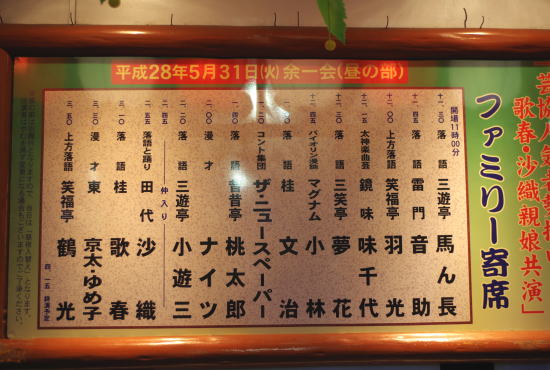 平成28年5月31日(火)余一会(昼の部)
歌春・沙織親娘共演」
ファミリー寄席
開場11時00分
十一、三〇 落語 三遊亭 馬ん長
十一、四五 落語 雷門 音助
十二、〇〇 上方落語 笑福亭 羽光
十二、一五 太神楽曲芸 鏡味 味千代
十二、三〇 落語 三笑亭 夢花
十二、四五 バイオリン漫談 マグナム小林
落語 桂 文治
コント集団 ザ・ニュースペーパー
落語 昔昔亭 桃太郎
二、〇〇 漫才 ナイツ
二、二〇 落語 三遊亭 小遊三
仲入り
二、五五 落語と踊り 田代 沙織
落語 桂 歌春
三、三〇 漫才 東 京太・ゆめ子
三、五〇 上方落語 笑福亭 鶴光
四、一五 終演予定